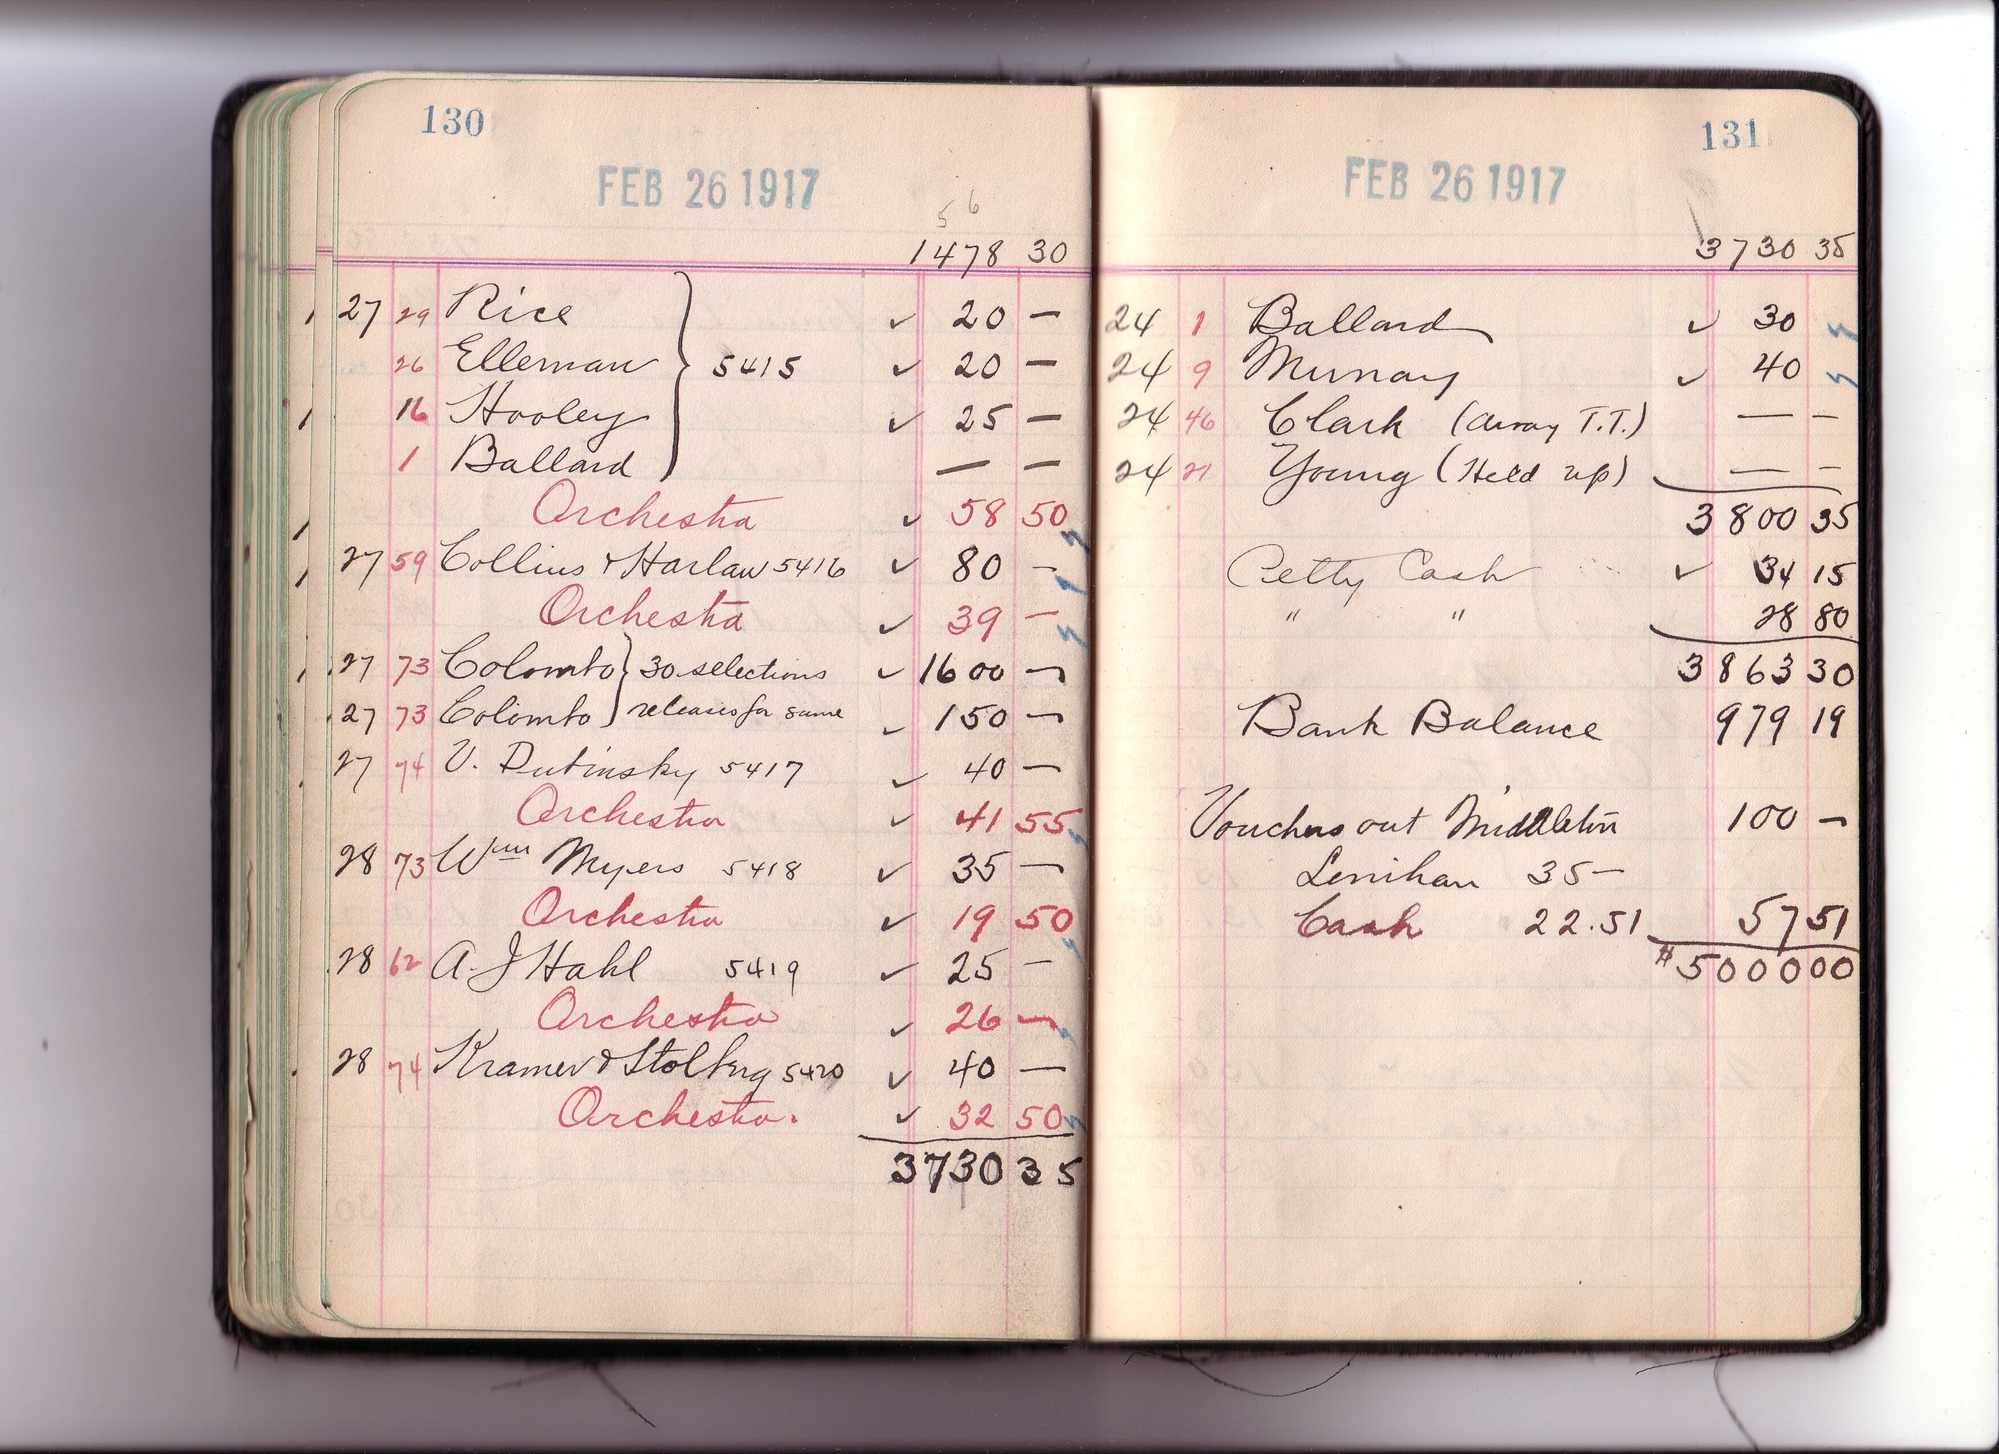 130
FEB 26 1917
5 6
1478 30
27 29 Rice ✓ 20 —
26 Elleman } 5415 ✓ 20 —
16 Hooley ✓ 25 —
1 Ballard — —
Orchestra ✓ 58 50
27 59 Collins & Harlan 5416 ✓ 80 —
Orchestra ✓ 39 —
27 73 Colombo } 30 selections ✓ 1600 —
27 73 Colombo } releases for same ✓ 150 —
27 74 V. Dubinsky 5417 ✓ 40 —
Orchestra ✓ 41 55
28 73 Wm Myers 5418 ✓ 35 —
Orchestra ✓ 19 50
28 62 A. J Hahl 5419 ✓ 25 —
Orchestra ✓ 26 —
28 74 Kramer & Stolberg 5420 ✓ 40 —
Orchestra. ✓ 32 50
3730 35
131
FEB 26 1917
3730 35
24 1 Ballard ✓ 30
24 9 Murray ✓ 40
24 46 Clark (away T.T.) — —
24 21 Young (Held up) — —
3800 35
Petty Cash ✓ 34 15
" " 28 80
3863 30
Bank Balance 979 19
Vouchers out Middleton 100 —
Lenihan 35 —
Cash 22.51 57 51
# 5000 00